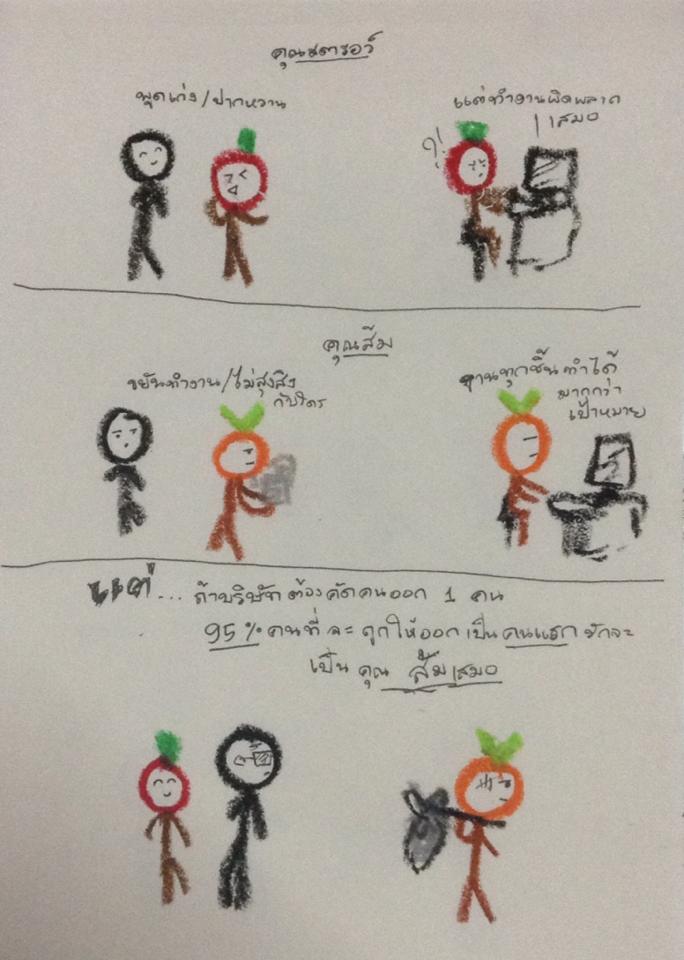 คุณสตรอว์
พูดเก่ง/ปากหวาน
แต่ทำงานผิดพลาด
เสมอ
?!
คุณส้ม
ขยันทำงาน/ไม่สุงสิง
กับใคร
งานทุกชิ้นทำได้
มากกว่า
เป้าหมาย
แต่... ถ้าบริษัทต้องคัดคนออก 1 คน
95% คนที่จะถูกให้ออกเป็นคนแรกมักจะ
เป็นคุณส้มเสมอ